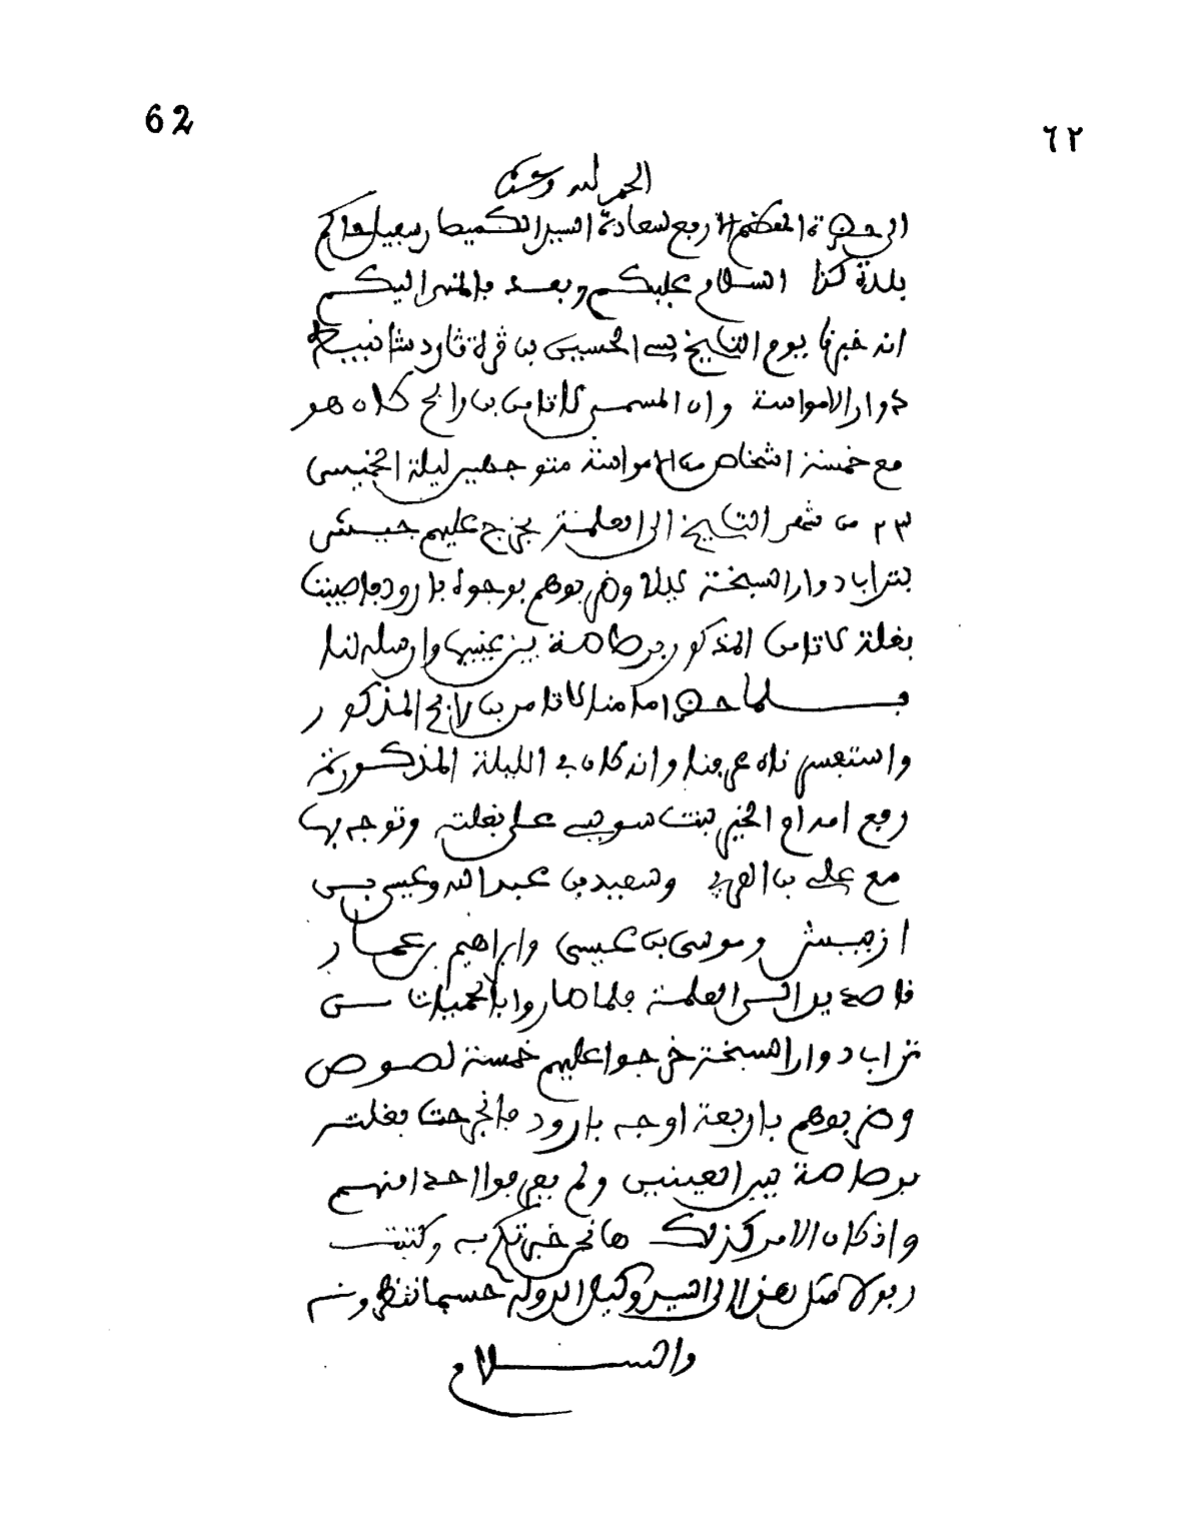 62
٦٢
الحمد لله وحده
الى حضرة المعظم الارفع سعادة السيد الكميصار سبيل حاكم
بلدة كذا السلام عليكم وبعد فالمنهى اليكم
انه خبرنا يوم التاريخ سي الحسين بن قرلة قايد شانبيط
دوار الامواسة وان المسمى كاتامن بن رابح كان هو
مع خمسة اشخاص من الامواسة متوجهين ليلة الخميس
٢٣ من شهر التاريخ الى العلمة فخرج عليهم جيش
بتراب دوار السبخة ليلا وضربوهم بوجوه بارود فاصيبت
بغلة كاتامن المذكور برصاصة بين عينيها وارسله لنا
فلما حضر امامنا كاتامن بن رابح المذكور
واستفسرناه عرفنا وانه كان في الليلة المذكورة
رفع امداح الخير بنت سوسي على بغلته وتوجه بها
مع علي بن العربي وسعيد بن عبد الله وعيسى بن
ازبيش وموسى بن عيسى وابراهيم بن عمار
قاصدين الى العلمة فلما صاروا بالحميلات من
تراب دوار السبخة خرجوا عليهم خمسة لصوص
وضربوهم باربعة اوجه بارود فانجرحت بغلته
برصاصة بين العينين ولم يعرفوا احدا منهم
واذ كان الامر كذلك ها نحن خبرناكم به وكتبت
ربولا مثل هذا الى السيد وكيل الدولة حسبما تنظرونه
والسلام